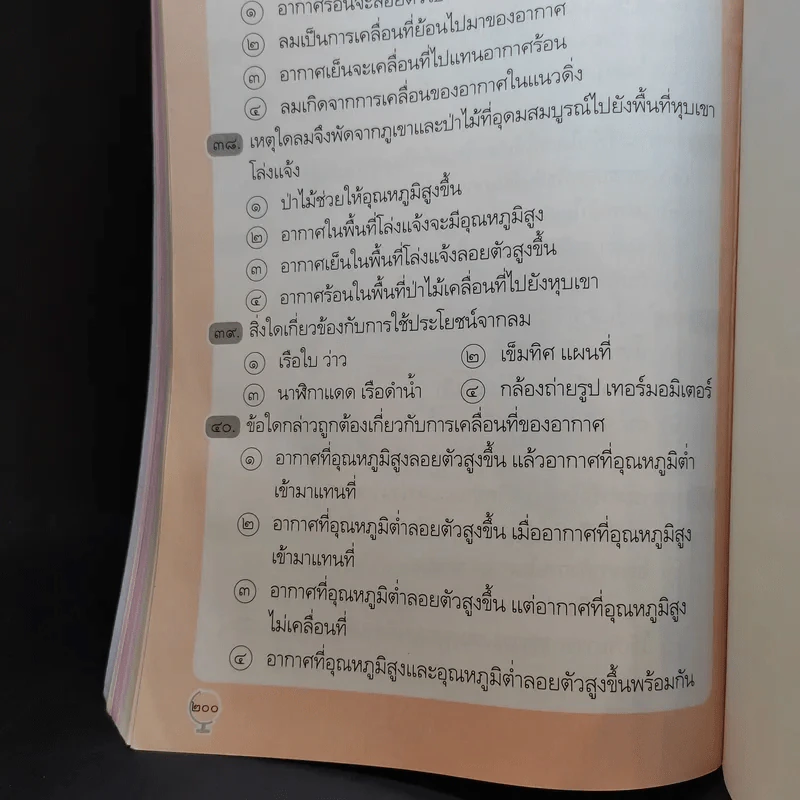 ๑ อากาศร้อนจะลอยตัว
๒ ลมเป็นการเคลื่อนที่ย้อนไปมาของอากาศ
๓ อากาศเย็นจะเคลื่อนที่ไปแทนอากาศร้อน
๔ ลมเกิดจากการเคลื่อนของอากาศในแนวดิ่ง
๓๘. เหตุใดลมจึงพัดจากภูเขาและป่าไม้ที่อุดมสมบูรณ์ไปยังพื้นที่หุบเขา
โล่งแจ้ง
๑ ป่าไม้ช่วยให้อุณหภูมิสูงขึ้น
๒ อากาศในพื้นที่โล่งแจ้งจะมีอุณหภูมิสูง
๓ อากาศเย็นในพื้นที่โล่งแจ้งลอยตัวสูงขึ้น
๔ อากาศร้อนในพื้นที่ป่าไม้เคลื่อนที่ไปยังหุบเขา
๓๙. สิ่งใดเกี่ยวข้องกับการใช้ประโยชน์จากลม
๑ เรือใบ ว่าว ๒ เข็มทิศ แผนที่
๓ นาฬิกาแดด เรือดำน้ำ ๔ กล้องถ่ายรูป เทอร์มอมิเตอร์
๔๐. ข้อใดกล่าวถูกต้องเกี่ยวกับการเคลื่อนที่ของอากาศ
๑ อากาศที่อุณหภูมิสูงลอยตัวสูงขึ้น แล้วอากาศที่อุณหภูมิต่ำ
เข้ามาแทนที่
๒ อากาศที่อุณหภูมิต่ำลอยตัวสูงขึ้น เมื่ออากาศที่อุณหภูมิสูง
เข้ามาแทนที่
๓ อากาศที่อุณหภูมิต่ำลอยตัวสูงขึ้น แต่อากาศที่อุณหภูมิสูง
ไม่เคลื่อนที่
๔ อากาศที่อุณหภูมิสูงและอุณหภูมิต่ำลอยตัวสูงขึ้นพร้อมกัน
๒๐๐